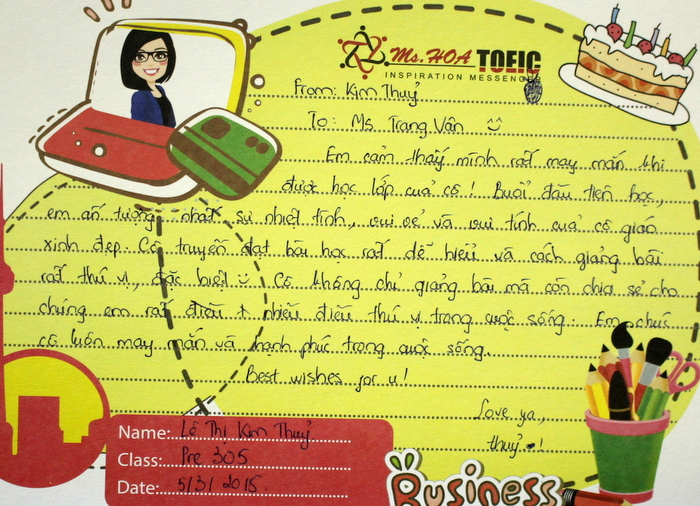 Ms. HOA TOEIC
INSPIRATION MESSENGER
From: Kim Thuỷ
To: Ms Trang Vân
Em cảm thấy mình rất may mắn khi
được học lớp của cô! Buổi đầu tiên học,
em ấn tượng nhất sự nhiệt tình, vui vẻ và vui tính của cô giáo
xinh đẹp. Cô truyền đạt bài học rất dễ hiểu và cách giảng bài
rất thú vị, đặc biệt. Cô không chỉ giảng bài mà còn chia sẻ cho
chúng em rất điều nhiều điều thú vị trong cuộc sống. Em chúc
cô luôn may mắn và hạnh phúc trong cuộc sống.
Best wishes for u!
Love ya,
Thuỷ !
Name: Lê Thị Kim Thuỷ
Class: Pre 305
Date: 5/3/2015.
Business